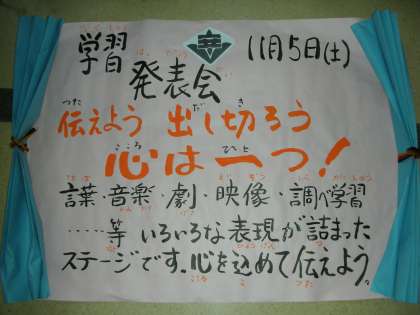 学習 11月5日(土)
発表会
伝えよう 出し切ろう
心は一つ!
言葉・音楽・劇・映像・調べ学習
……等 いろいろな表現が詰まった
ステージです。心を込めて伝えよう。